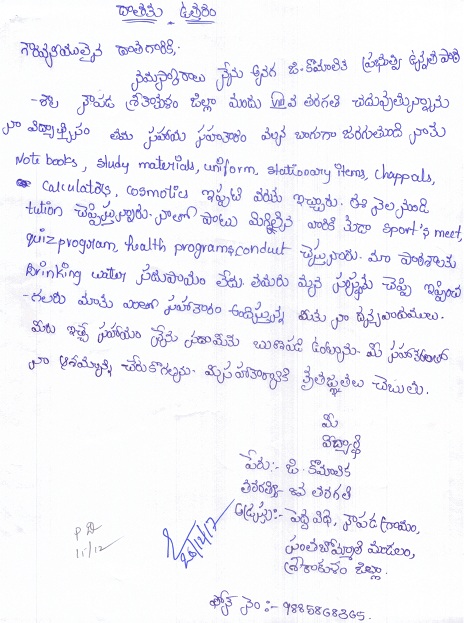 దాతకు ఉత్తరం
గౌరవనీయులైన దాతగారికి,
నమస్కారాలు నేను అనగా జి. కోమలిక ప్రభుత్వ ఉన్నత పాఠ
-శాల నౌపడ శ్రీకాకుళం జిల్లా నందు VIII వ తరగతి చదువుతున్నాను
నా విద్యాభ్యాసం తమ సహాయ సహకారం వల్లన బాగుగా జరుగుతుంది నాకు
Note books, study materials, uniform, stationary items, chappals,
calculators, cosmotics ఇప్పటి వరకు ఇచ్చారు. ఈ నెల నుండి
tution చెప్పిస్తున్నారు. నాతో పాటు మిగిలిన వారికి కూడా sport's meet,
quiz program, health programs conduct చేస్తున్నారు. మా పాఠశాలకు
Drinking water సదుపాయం లేదు. తమరు
-గలరు మాకు ఎంతో సహకారం అందిస్తున్న మీకు నా ధన్యవాదములు.
మీరు ఇచ్చే సహాయం నేను సదా మీకు ఋణపడి ఉంటాను. మీ సహకారంతో
నా ఆశయాన్ని చేరుకోగలను. మీ సహాకార్యానికి కృతజ్ఞతలు చెబుతు.
మీ
విద్యార్థి
పేరు:- జి. కోమలిక
తరగతి:- 8వ తరగతి
అడ్రస్సు:- పెద్ద వీధి, నౌపడ గ్రామం,
సంతబొమ్మాళి మండలం,
శ్రీకాకుళం జిల్లా.
ఫోన్ నెం:- 9885868365.
11/12
20/12/17